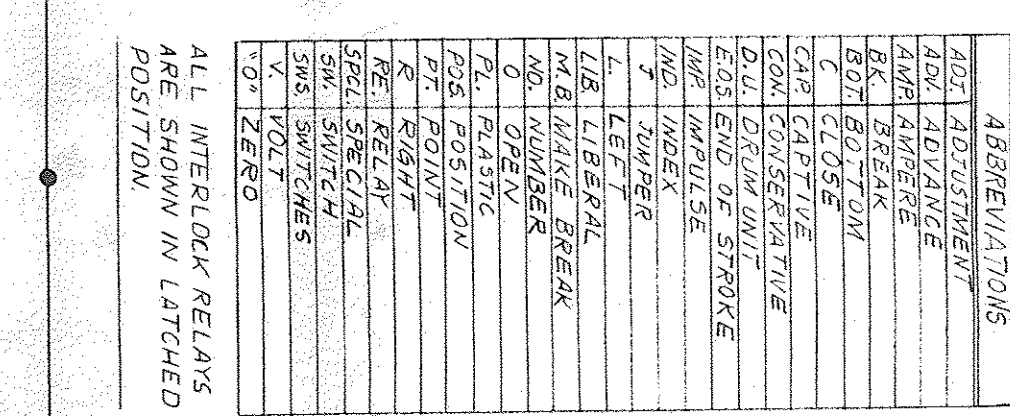 ABBREVIATIONS
ADJ. ADJUSTMENT
ADV. ADVANCE
AMP. AMPERE
BK. BREAK
BOT. BOTTOM
C CLOSE
CAP. CAPTIVE
CON. CONSERVATIVE
D.U. DRUM UNIT
E.O.S. END OF STROKE
IMP. IMPULSE
IND. INDEX
J JUMPER
L. LEFT
LIB. LIBERAL
M.B. MAKE BREAK
NO. NUMBER
O OPEN
PL. PLASTIC
POS. POSITION
PT. POINT
R RIGHT
RE. RELAY
SPCL. SPECIAL
SW. SWITCH
SWS. SWITCHES
V. VOLT
"O" ZERO
ALL INTERLOCK RELAYS
ARE SHOWN IN LATCHED
POSITION.